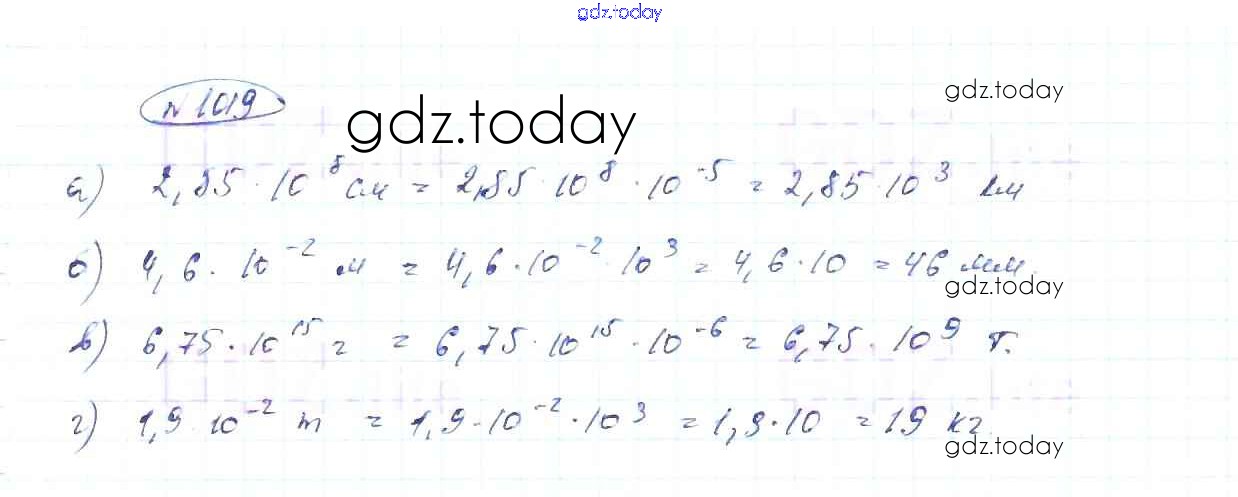 gdz.today
№ 1019
gdz.today
gdz.today
а) 2,85 · 10⁸ см = 2,85 · 10⁸ · 10⁻⁵ = 2,85 · 10³ км
б) 4,6 · 10⁻² м = 4,6 · 10⁻² · 10³ = 4,6 · 10 = 46 мм.
gdz.today
в) 6,75 · 10¹⁵ г = 6,75 · 10¹⁵ · 10⁻⁶ = 6,75 · 10⁹ т.
г) 1,9 · 10⁻² т = 1,9 · 10⁻² · 10³ = 1,9 · 10 = 19 кг
gdz.today